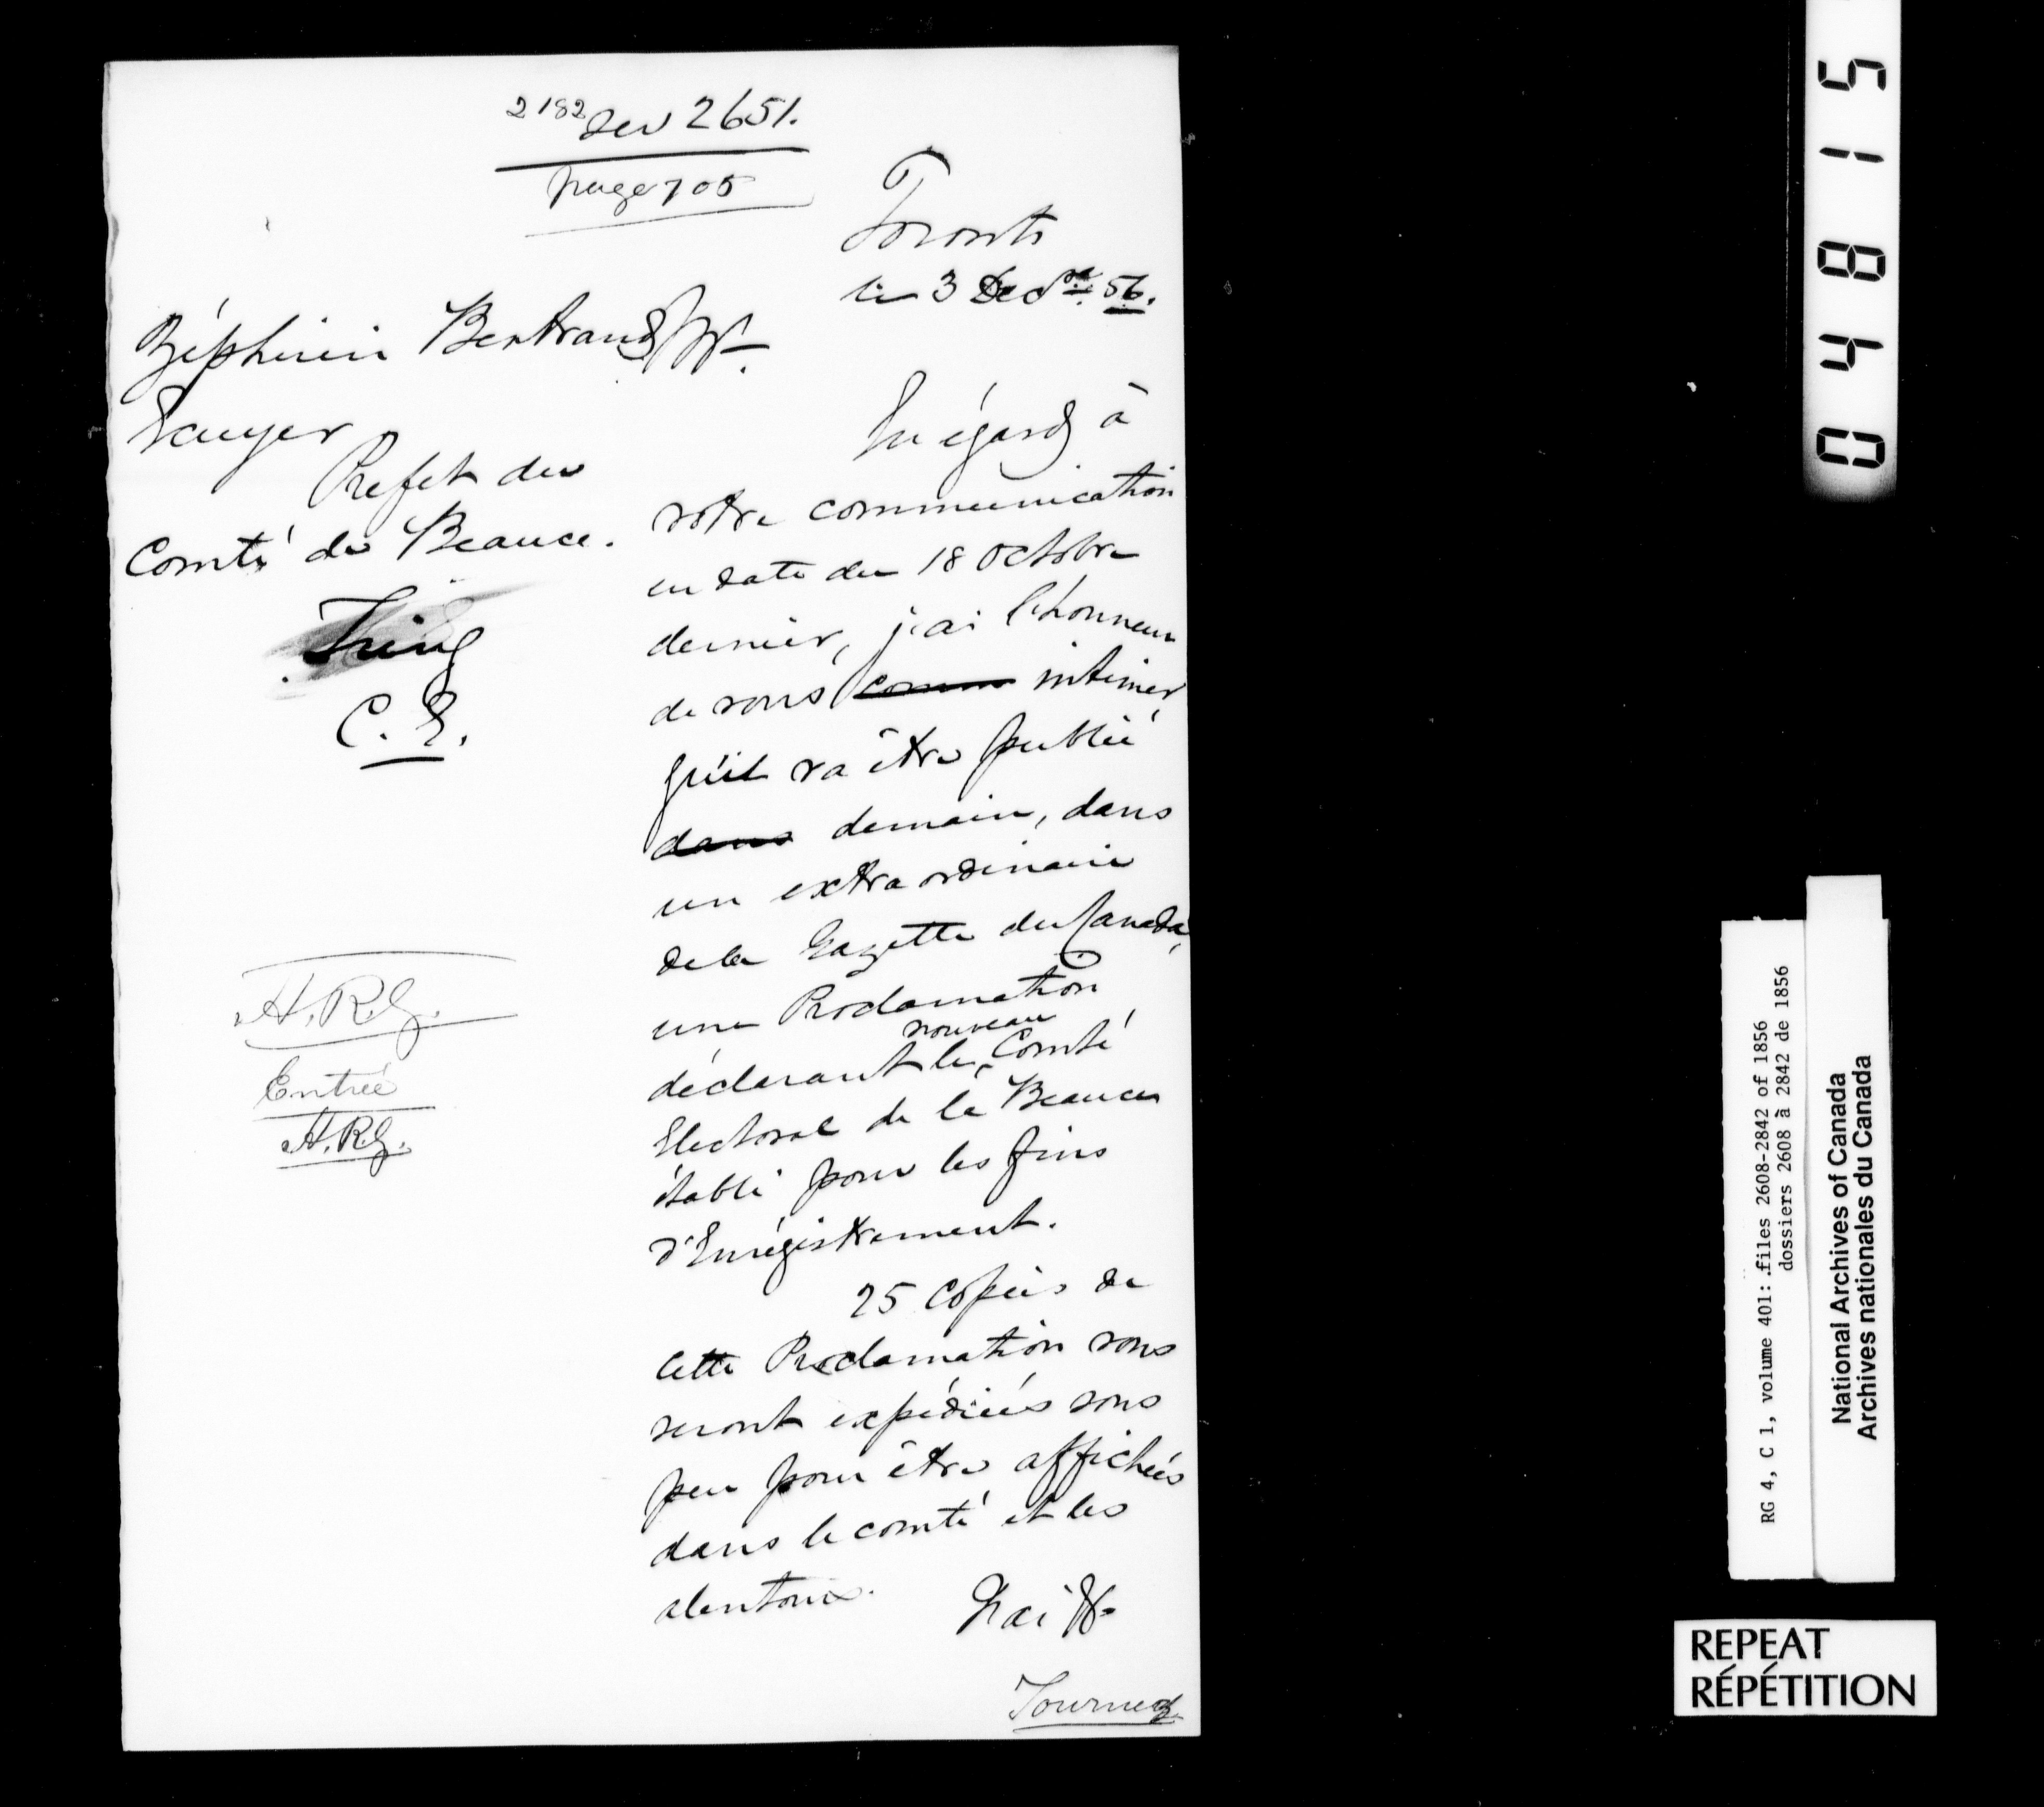 2182 der 2651.
page 705
Toronto
le 3 Decre. 56.
Zéphirin Bertrand
Ecuyer
Prefet du
Comté de Beauce.
Tring
C. E.
A.R.G.
Entrée
A.R.G.
En égard à
votre communication
en date du 18 Octobre
dernier, j'ai l'honneur
de vous comm intimer,
qu'il va être publié
dans demain, dans
un extraordinaire
de la Gazette du Canada,
une Proclamation
nouveau
déclarant le Comté
Electoral de la Beauce
établi pour les fins
d'Enrégistrement.
25 Copies de
cette Proclamation vous
seront expédiées sous
peu pour être affichées
dans le comté et les
alentours.
J'ai &c
Tournez
04815
RG 4, C 1, volume 401: files 2608-2842 of 1856
dossiers 2608 à 2842 de 1856
National Archives of Canada
Archives nationales du Canada
REPEAT
RÉPÉTITION